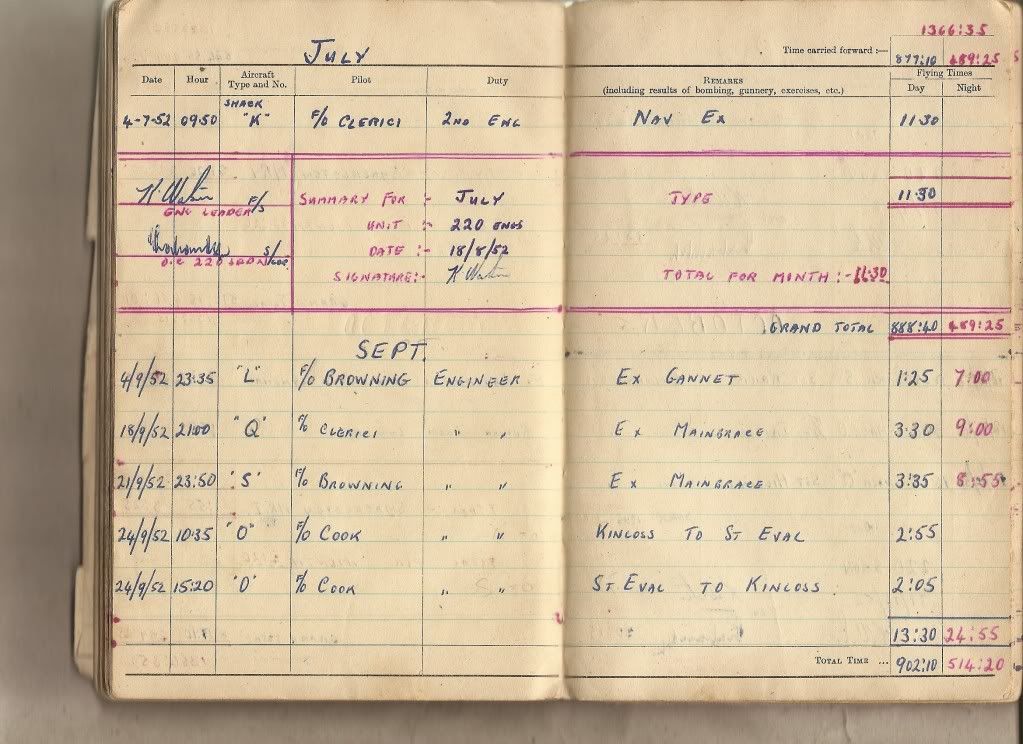 1366:35
JULY Time carried forward :— 877:10 489:25
Date Hour Aircraft Type and No. Pilot Duty REMARKS (including results of bombing, gunnery, exercises, etc.) Flying Times Day Night
SHACK
4-7-52 09:50 "K" F/O CLERICI 2ND ENG NAV EX 11:30
K. Watson F/S SUMMARY FOR :- JULY TYPE 11:30
ENG LEADER
UNIT :- 220 ENGS
S/LDR DATE :- 18/8/52
O.C 220 SQDN
SIGNATURE:- K Watson TOTAL FOR MONTH :- 11:30
GRAND TOTAL 888:40 489:25
SEPT.
4/9/52 23:35 "L" F/O BROWNING ENGINEER EX GANNET 1:25 7:00
18/9/52 21:00 "Q" F/O CLERICI " " EX MAINBRACE 3:30 9:00
21/9/52 23:50 "S" F/O BROWNING " " EX MAINBRACE 3:35 8:55
24/9/52 10:35 "O" F/O COOK " " KINLOSS TO ST EVAL 2:55
24/9/52 15:20 "O" F/O COOK " " ST EVAL TO KINLOSS 2:05
13:30 24:55
TOTAL TIME ... 902:10 514:20